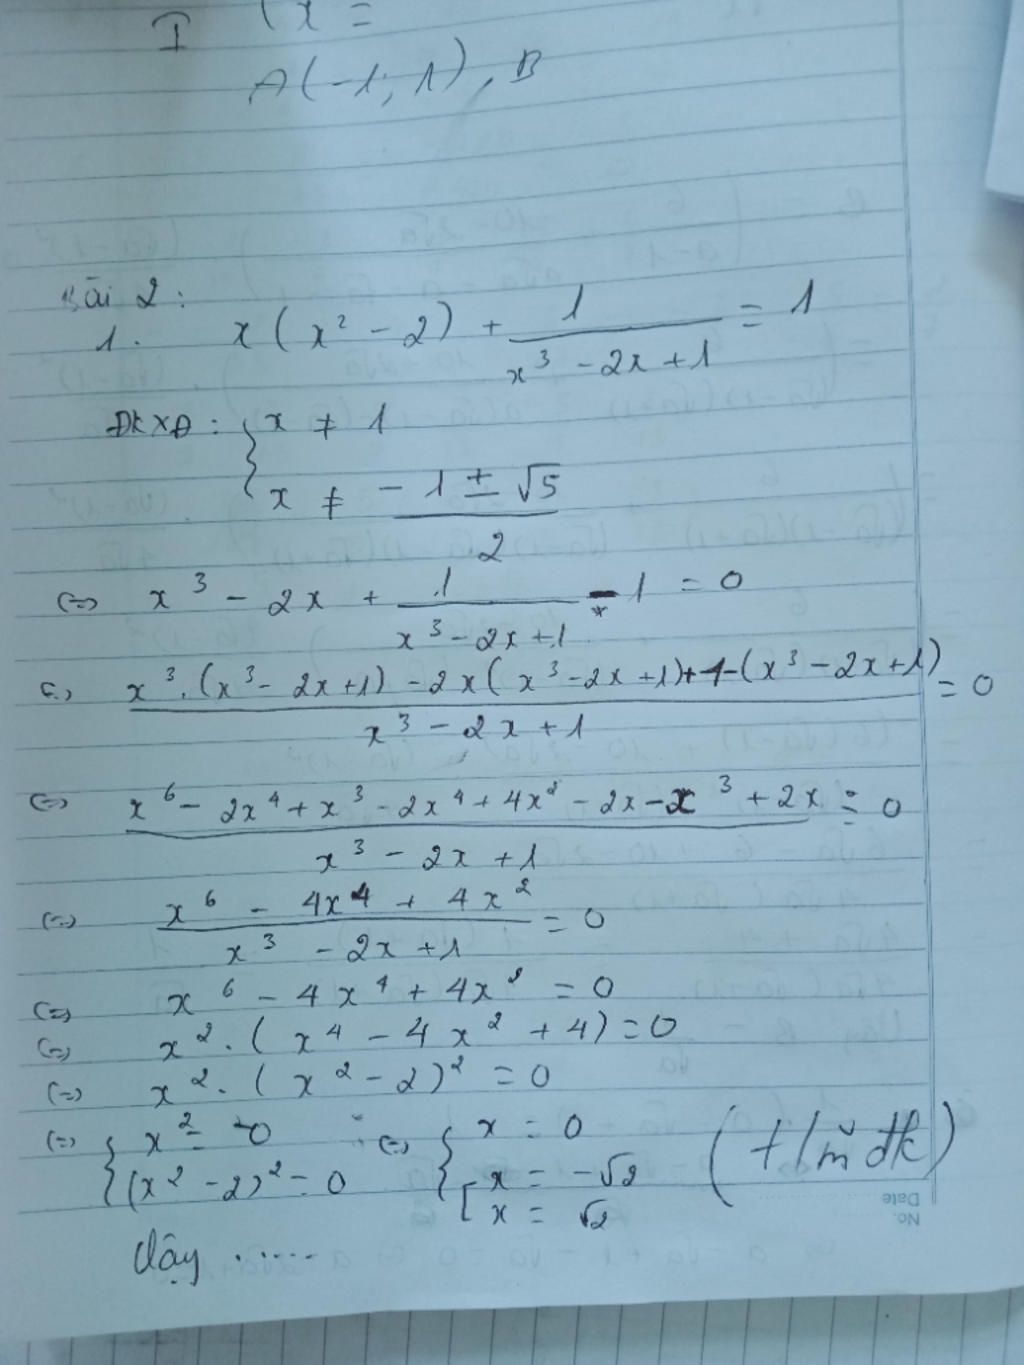 I (x =
A(-1; 1), B
Bài 2:
1. x(x² - 2) + 1/(x³ - 2x + 1) = 1
ĐKXĐ: { x ≠ 1
x ≠ (-1 ± √5)/2
(=) x³ - 2x + 1/(x³ - 2x + 1) - 1 = 0
(=) (x³.(x³ - 2x + 1) - 2x(x³ - 2x + 1) + 1 - (x³ - 2x + 1))/(x³ - 2x + 1) = 0
(=) (x⁶ - 2x⁴ + x³ - 2x⁴ + 4x² - 2x - x³ + 2x)/(x³ - 2x + 1) = 0
(=) (x⁶ - 4x⁴ + 4x²)/(x³ - 2x + 1) = 0
(=) x⁶ - 4x⁴ + 4x² = 0
(=) x².(x⁴ - 4x² + 4) = 0
(=) x².(x² - 2)² = 0
(=) { x² = 0 (=) { x = 0 (t/m đk)
(x² - 2)² = 0 [ x = -√2
x = √2
Vậy ......
Date
No.